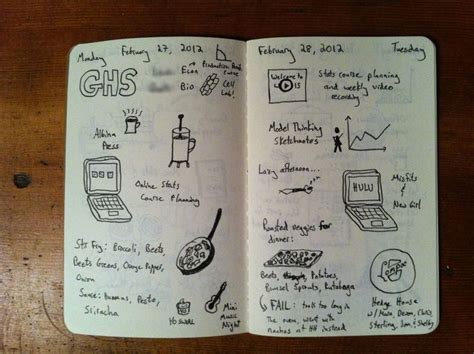 Monday February 27, 2012
GHS
Econ
Production Possib.
Curve
Bio
Cell
Lab!
Albina
Press
Online Stats
Course Planning
Stir Fry: Broccoli, Beets,
Beets Greens, Orange Pepper,
Onion
Sauce: Hummus, Pesto,
Sriracha
Mini
Music
Night
February 28, 2012 Tuesday
Welcome to
Stats course planning
and weekly video
recording
Model Thinking
Sketchnotes
Lazy afternoon...
HULU
Misfits
&
New Girl
Roasted veggies for
dinner:
Beets, Potatoes,
Brussel Sprouts, Rutabaga
↳ FAIL: took too long in
the oven, went with
nachos at HH instead
Hedge House
w/ Mura, Deron, Chris,
Sterling, Jon, & Shelby